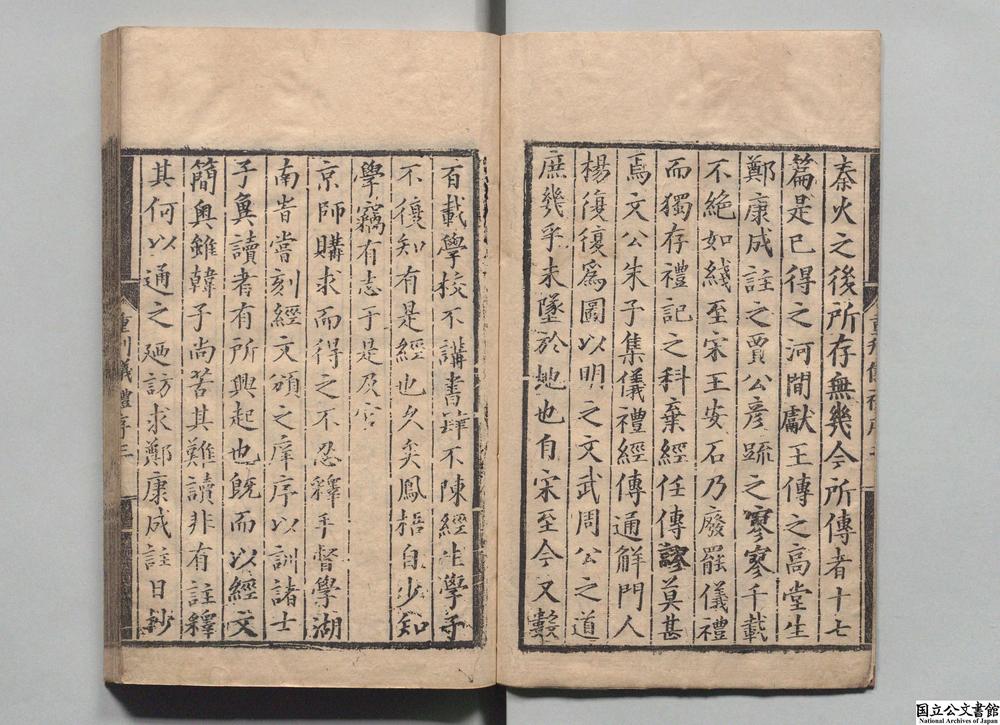 秦火之後所存無幾今所傳者十七
篇是已得之河間獻王傳之高堂生
鄭康成註之賈公彦䟽之寥寥千載
不絶如綫至宋王安石乃廢罷儀禮
而獨存禮記之科棄經任傳謬莫甚
焉文公朱子集儀禮經傳通解門人
楊復復爲圖以明之文武周公之道
庶幾乎未墜於地也自宋至今又數
百載學校不講書肆不陳經生學子
不復知有是經也久矣鳳梧自少知
學竊有志于是及官
京師購求而得之不忍釋手督學湖
南旹嘗刻經文頒之庠序以訓諸士
子兾讀者有所興起也旣而以經文
簡奥雖韓子尚苦其難讀非有註釋
其何以通之廼訪求鄭康成註日抄
重刊儀禮序 三
国立公文書館
National Archives of Japan